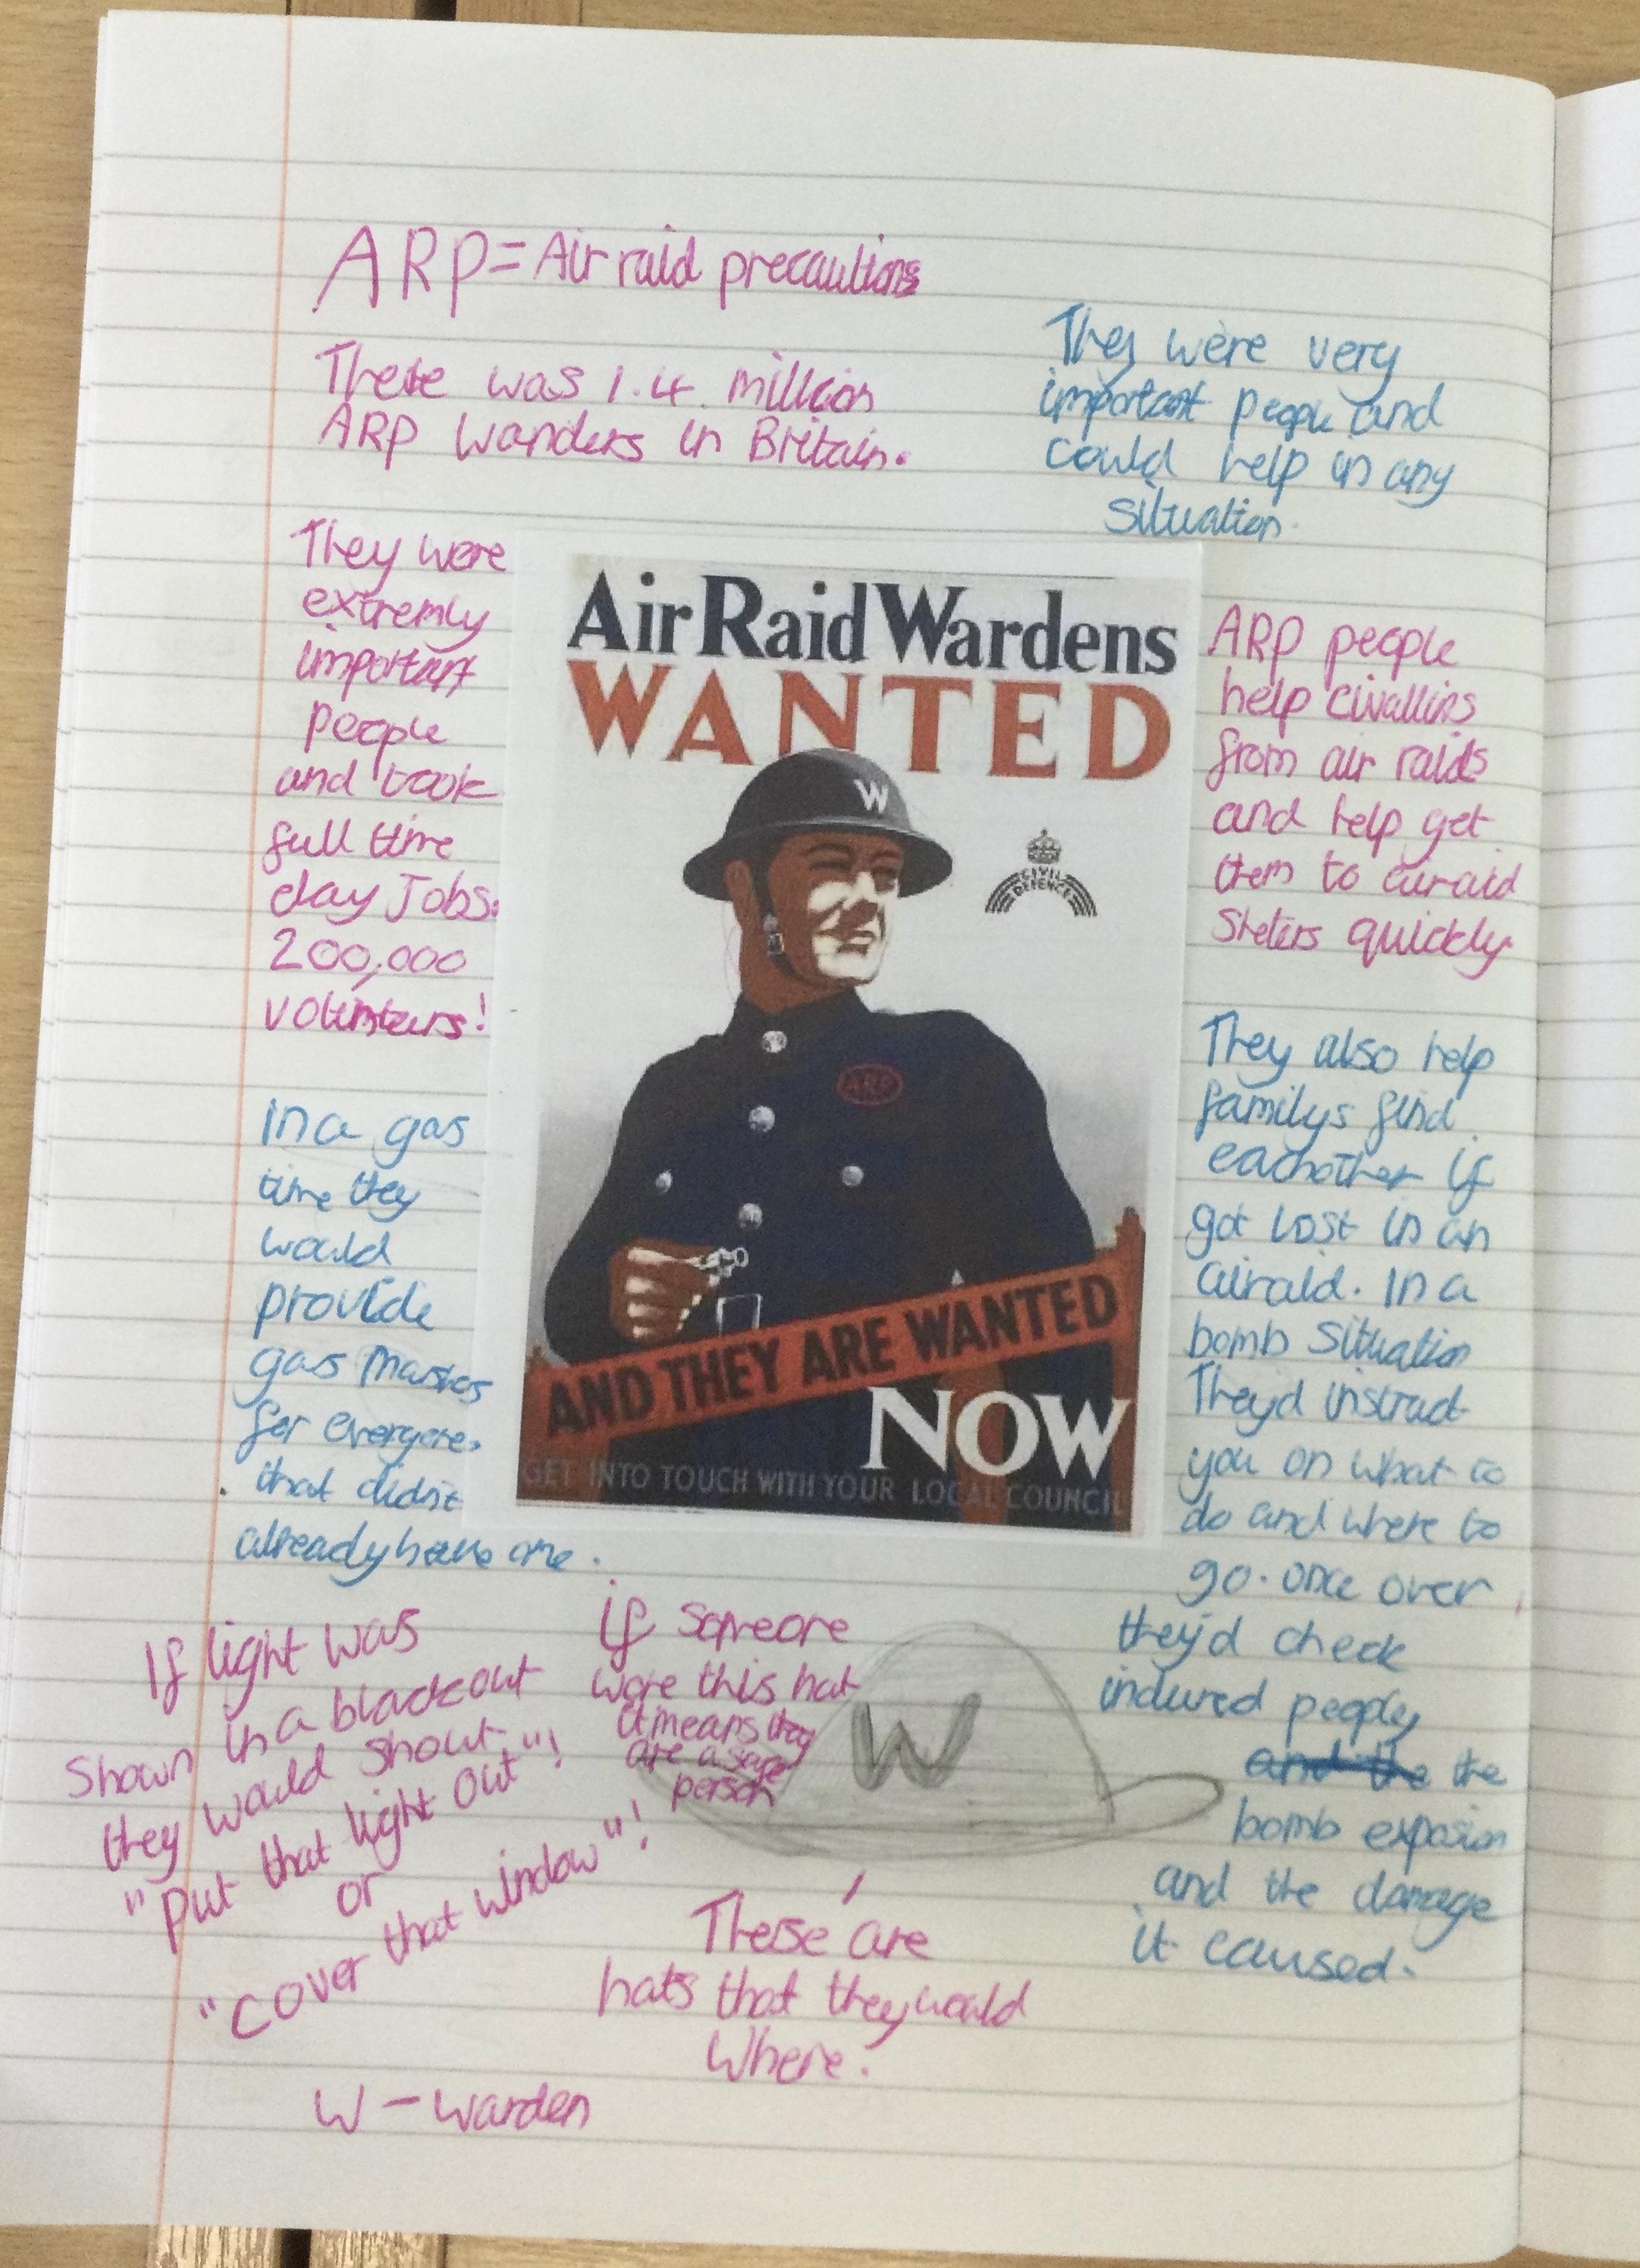 ARP = Air raid precautions
There was 1.4 million
ARP wanders in Britain.
They were very
important people and
could help in any
situation.
They were
extremly
important
people
and took
full time
day Jobs.
200,000
volunteers!
In a gas
time they
would
provide
gas masks
for everyone.
that didn't
already have one.
Air Raid Wardens
WANTED
W
CIVIL
DEFENCE
ARP
AND THEY ARE WANTED
NOW
GET INTO TOUCH WITH YOUR LOCAL COUNCIL
ARP people
help civallins
from air raids
and help get
them to airaid
shelters quickly.
They also help
familys find
eachother if
got lost in an
airaid. In a
bomb situation
They'd instruct
you on what to
do and where to
go. once over
they'd check
indured people
and the the
bomb exposion
and the damage
it caused.
If light was
shown in a blackout
they would shout
"Put that light out"!
or
"cover that window"!
if someone
wore this hat
it means they
are a safe
person
W
These are
hats that they would
Where.
W - Warden